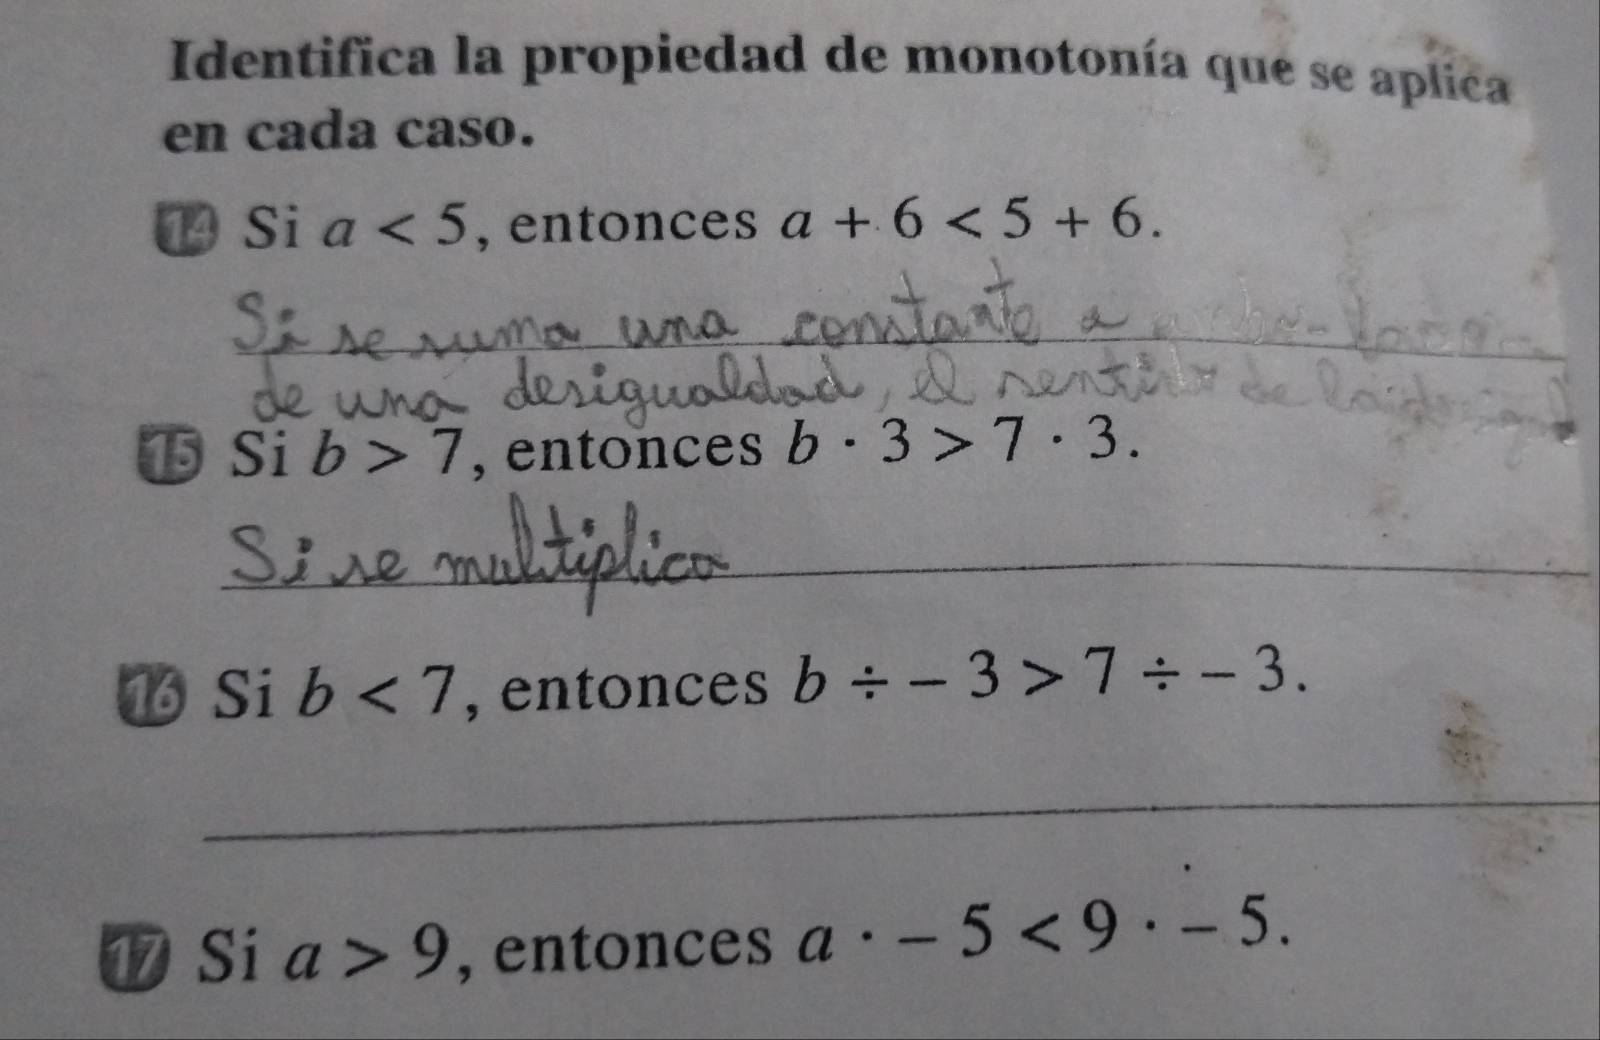 Identifica la propiedad de monotonía que se aplica
en cada caso.
14 Si a < 5, entonces a + 6 < 5 + 6.
Si se suma una constante a
de una desigualdad, el sentido de la
15 Si b > 7, entonces b · 3 > 7 · 3.
Si se multiplica
16 Si b < 7, entonces b ÷ − 3 > 7 ÷ − 3.
17 Si a > 9, entonces a · − 5 < 9 · − 5.